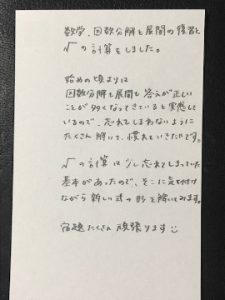 数学、因数分解と展開の復習と
√の計算をしました。
始めの頃よりは
因数分解も展開も答えが正しい
ことが多くなってきていると実感して
いるので、忘れてしまわないように
たくさん解いて、慣れていきたいです。
√の計算は少し忘れてしまっていた
基本があったので、そこに気を付け
ながら新しい式の形も解いてみます。
宿題たくさん頑張ります